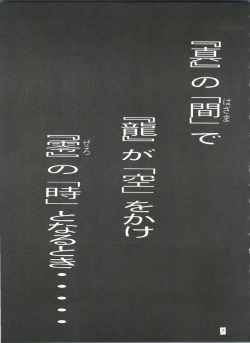 『真』の「間」で
『龍』が「空」をかけ
『零』の「時」となるとき・・・・・